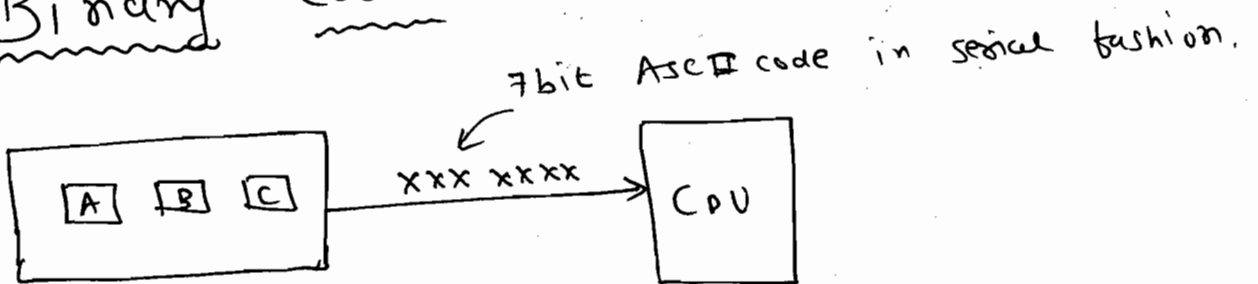 Binary
7bit ASCII code in serial fashion.
xxx xxxx
A B C
CPU